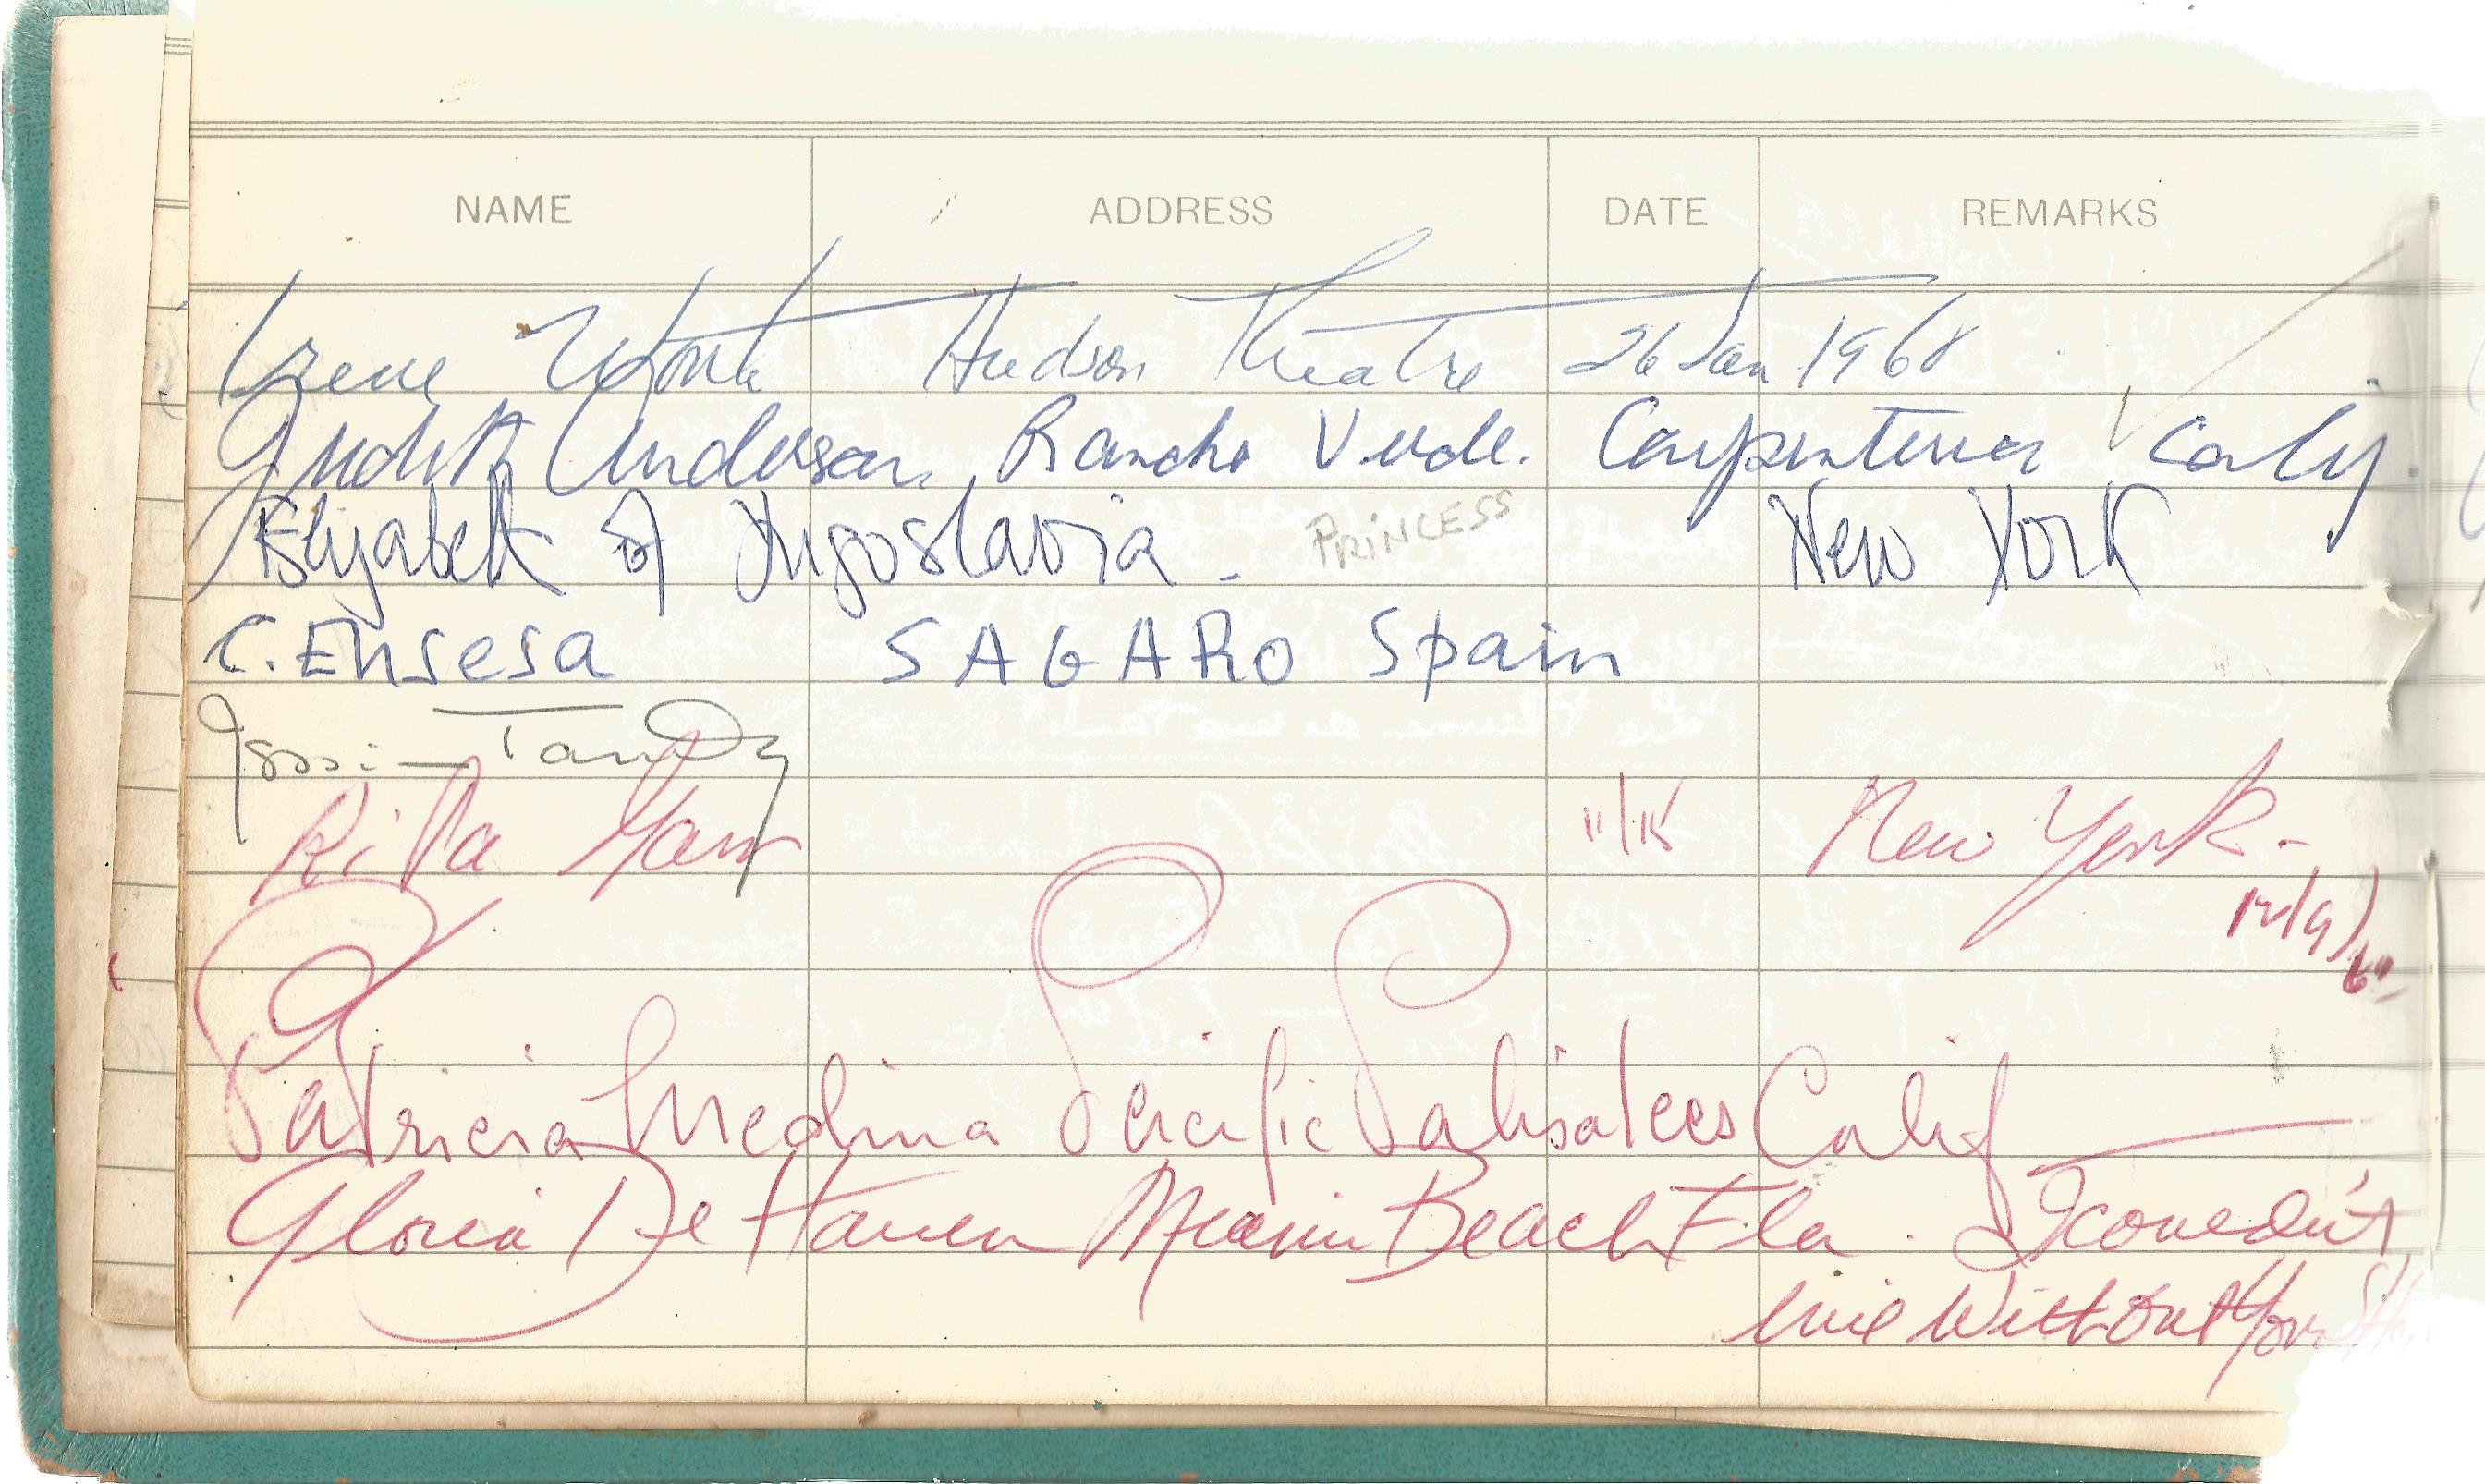 NAME ADDRESS DATE REMARKS
Irene Worth Hudson Theatre 26 Jan 1968
Judith Anderson. Rancho Verde. Carpinteria Calif.
Elizabeth of Yugoslavia - PRINCESS New York
C. Ensesa SAGARO Spain
Jessica Tandy
Rita Gam 11/15 New York -
12/9/
Patricia Medina Pacific Palisades Calif
Gloria De Haven Miami Beach Fla. I couldn't
live without your